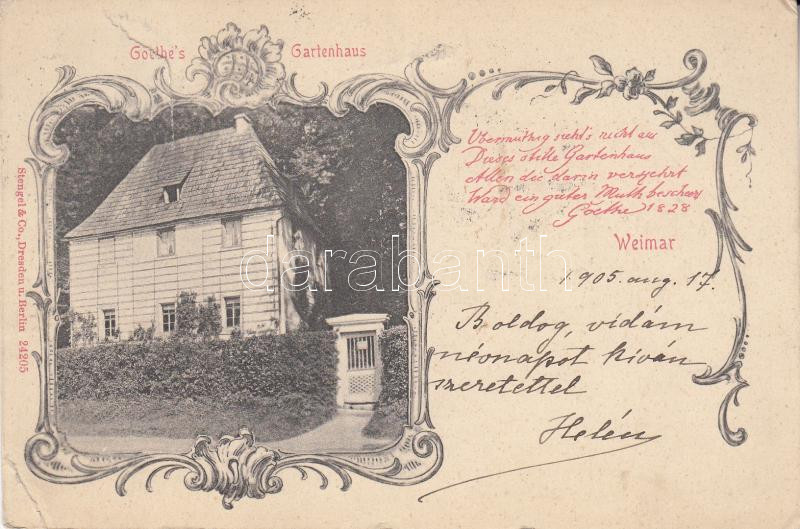 Goethe's Gartenhaus
Übermüthig sieht's nicht aus
Dieses stille Gartenhaus
Allen die darin verkehrt
Ward ein guter Muth bescheert
Goethe 1828
Weimar
1905. aug. 17.
Boldog, vidám
névnapot kiván
szeretettel
Helén
Stengel & Co., Dresden u. Berlin 24205
darabanth